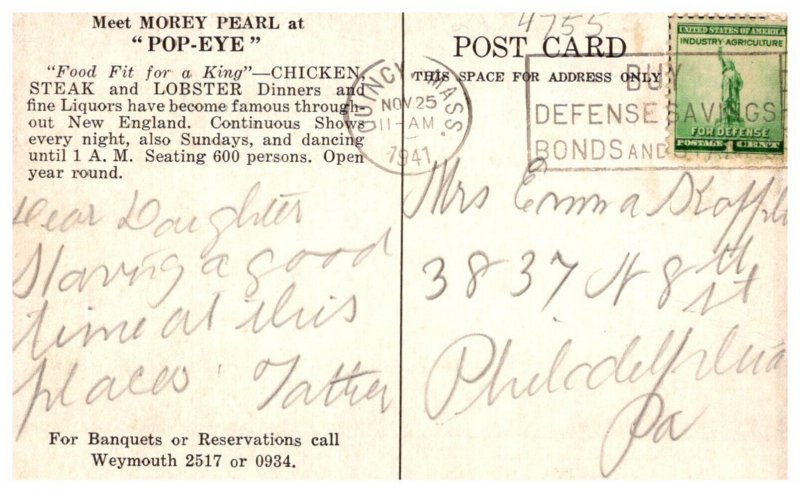 Meet MOREY PEARL at
"POP-EYE"
"Food Fit for a King"—CHICKEN,
STEAK and LOBSTER Dinners and
fine Liquors have become famous through-
out New England. Continuous Shows
every night, also Sundays, and dancing
until 1 A. M. Seating 600 persons. Open
year round.
Dear Daughter
Having a good
time at this
place Father
For Banquets or Reservations call
Weymouth 2517 or 0934.
4755
POST CARD
THIS SPACE FOR ADDRESS ONLY
QUINCY MASS.
NOV 25
11-AM
1941
BUY
DEFENSE SAVINGS
BONDS AND
UNITED STATES OF AMERICA
INDUSTRY AGRICULTURE
FOR DEFENSE
POSTAGE 1 CENT
Mrs Emma
3837 N 8th
St
Philadelphia
Pa